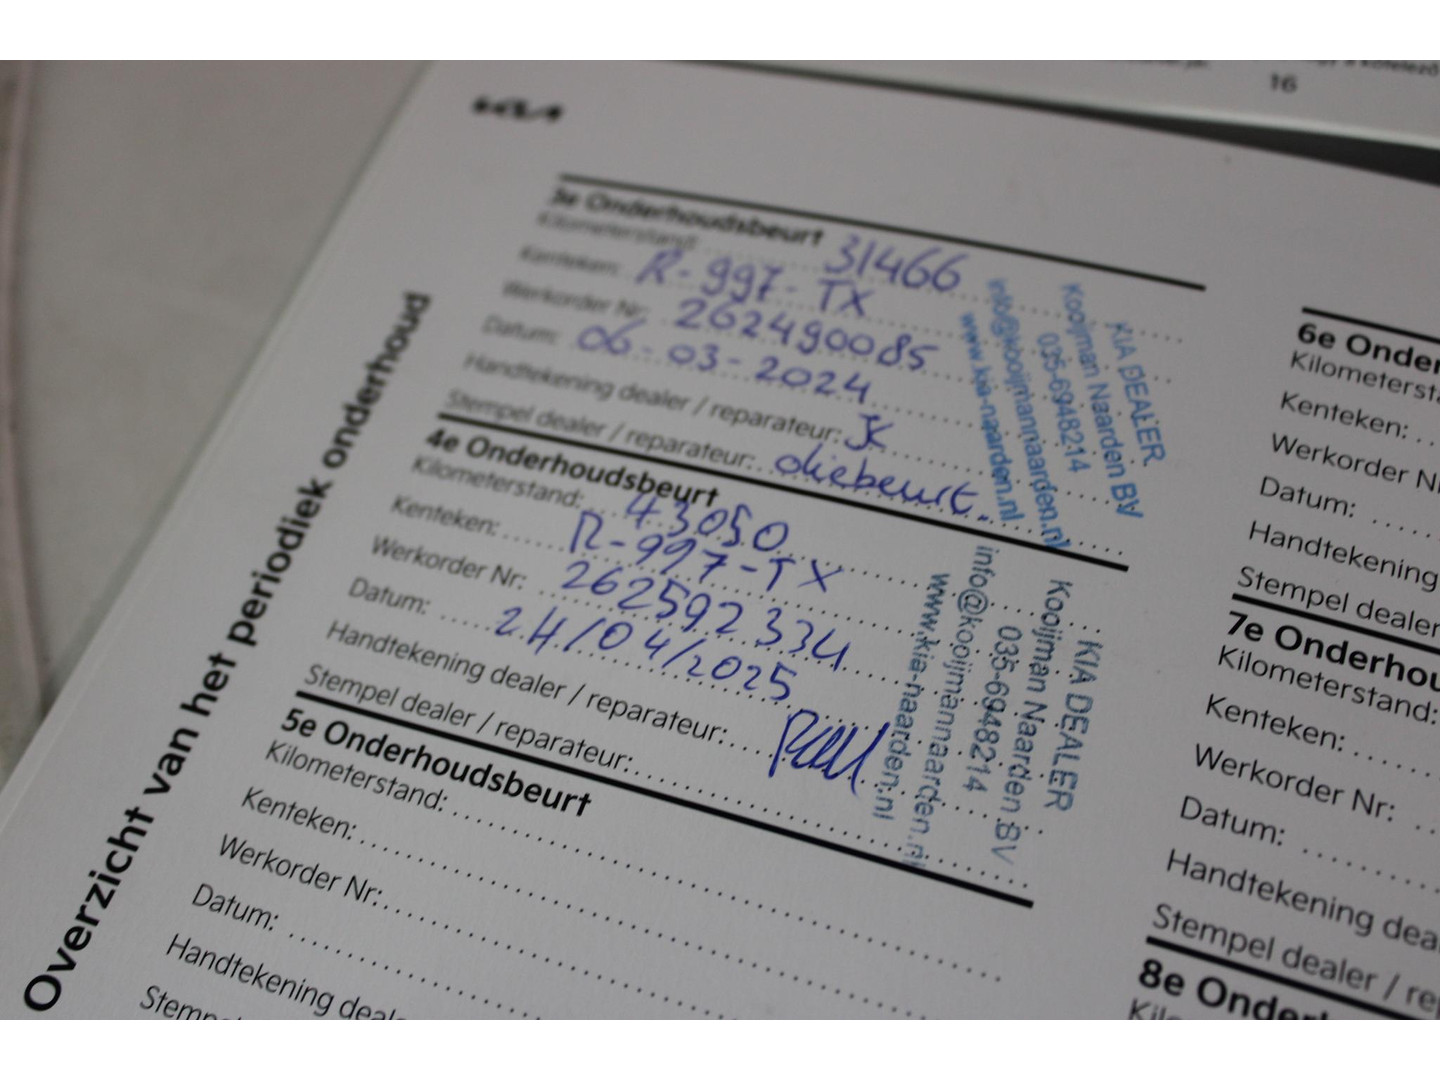 KIA
16
Overzicht van het periodiek onderhoud
3e Onderhoudsbeurt
Kilometerstand: 31466
Kenteken: R-997-TX
Werkorder Nr: 262490085
Datum: 06-03-2024
Handtekening dealer / reparateur: JK
Stempel dealer / reparateur: oliebeurt.
KIA DEALER
Kooijman Naarden BV
035-6948214
info@kooijmannaarden.nl
www.kia-naarden.nl
4e Onderhoudsbeurt
Kilometerstand: 43050
Kenteken: R-997-TX
Werkorder Nr: 262592334
Datum: 24/04/2025
Handtekening dealer / reparateur:
Stempel dealer / reparateur:
KIA DEALER
Kooijman Naarden BV
035-6948214
info@kooijmannaarden.nl
www.kia-naarden.nl
5e Onderhoudsbeurt
Kilometerstand:
Kenteken:
Werkorder Nr:
Datum:
Handtekening deale
Stemp
6e Onder
Kilometersta
Kenteken:
Werkorder N
Datum:
Handtekening
Stempel dealer
7e Onderhou
Kilometerstand:
Kenteken:
Werkorder Nr:
Datum:
Handtekening dea
Stempel dealer / re
8e Onder
Kil